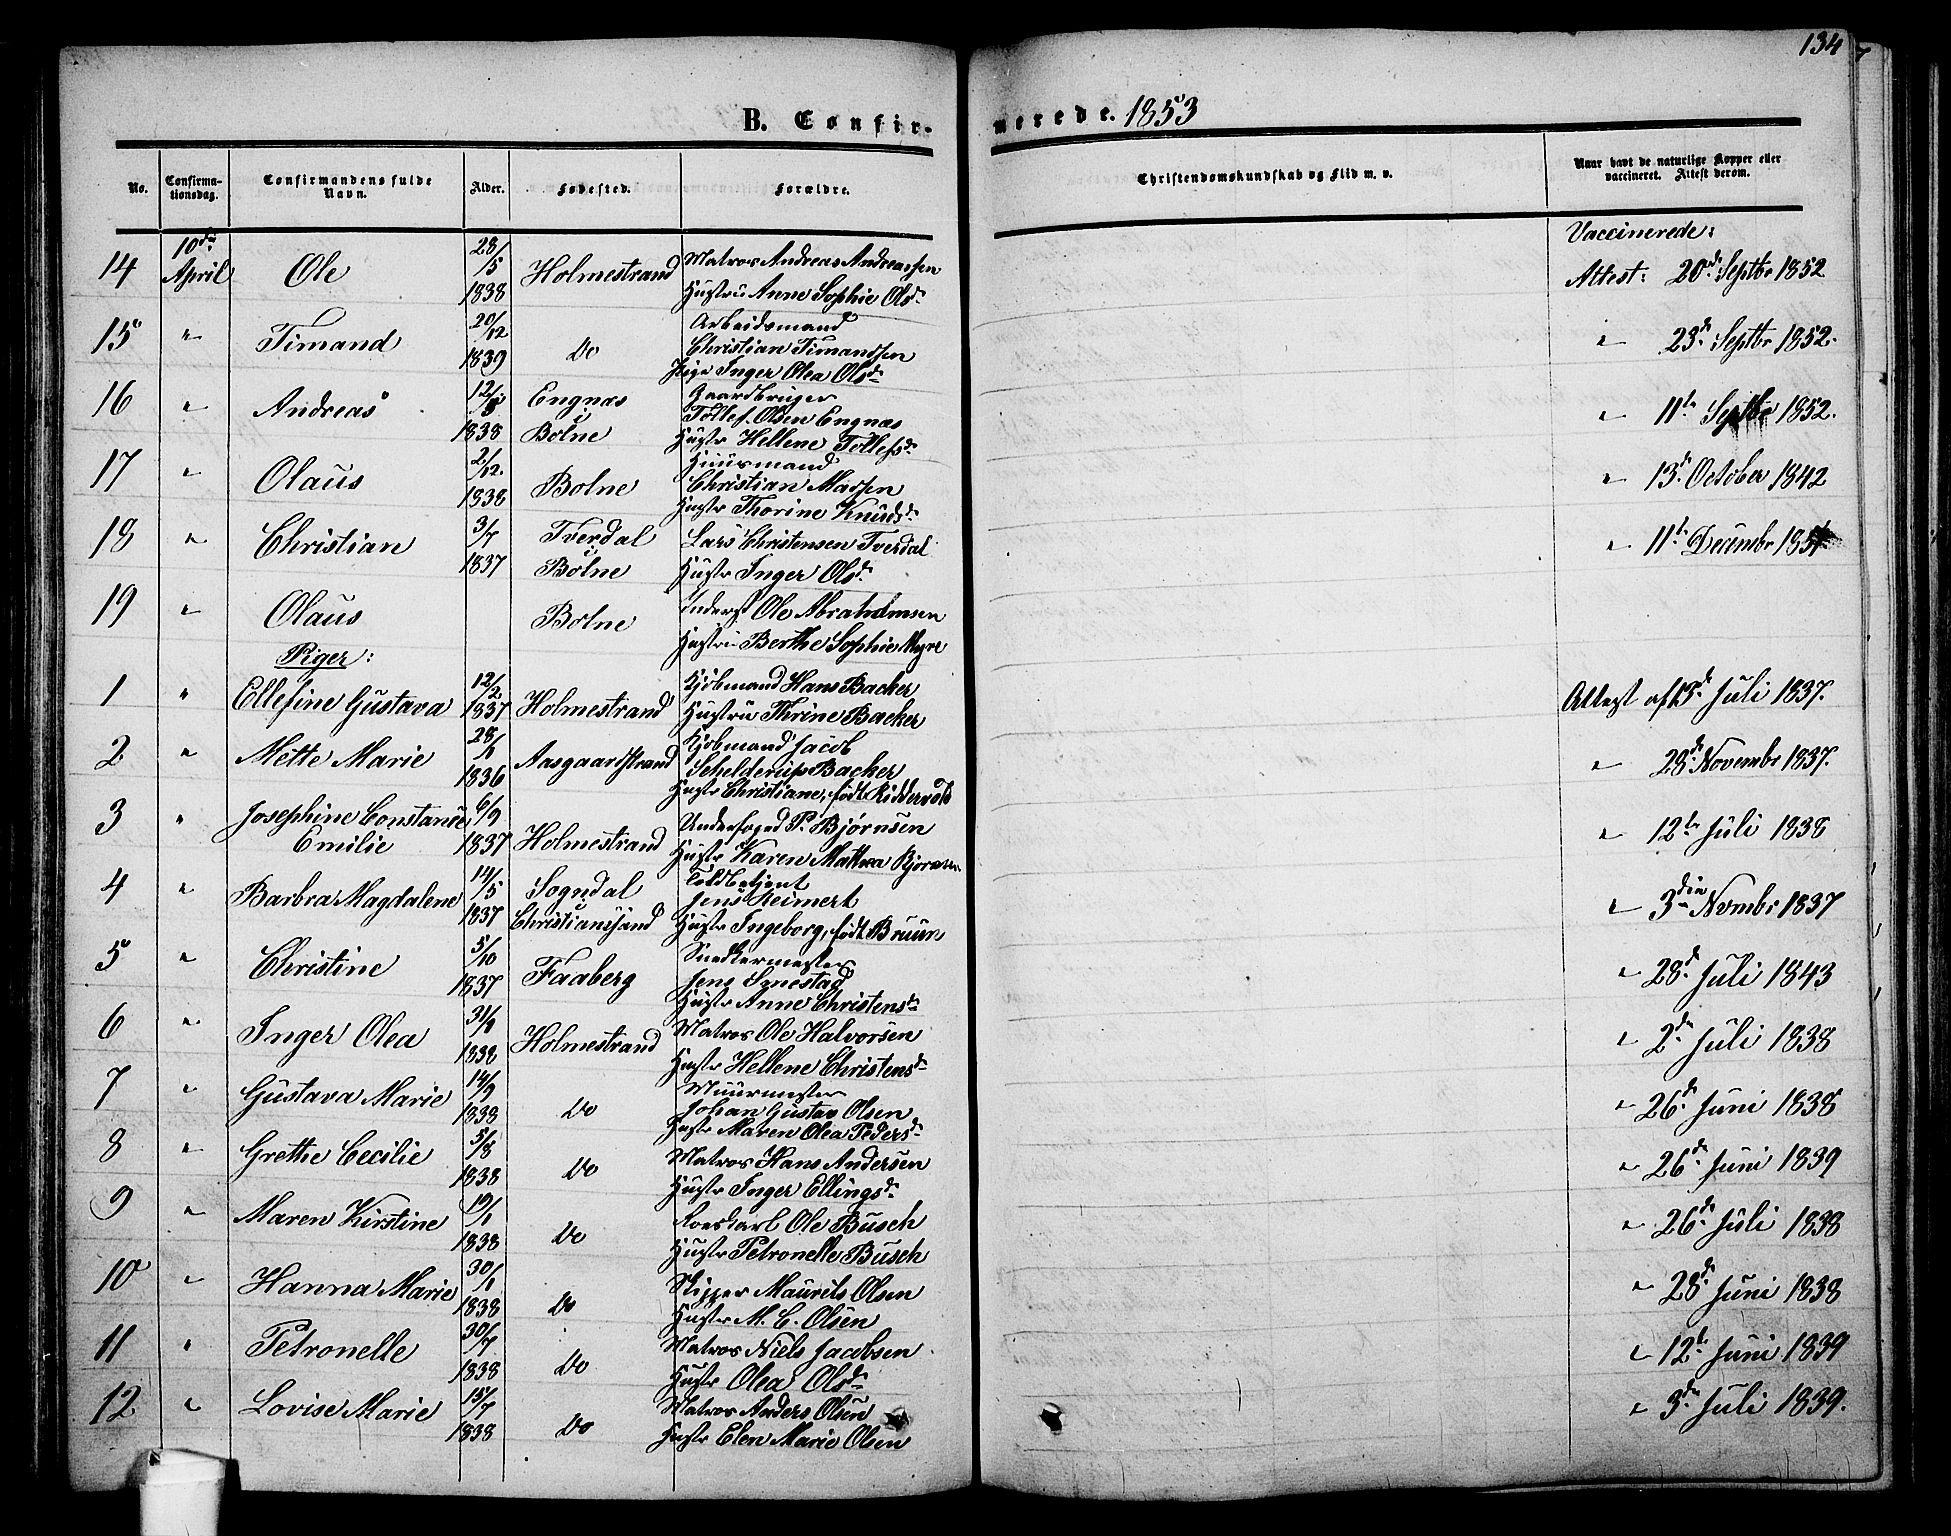 134
B. Confirmerede. 1853
No.
Confirmationsdag.
Confirmandens fulde Navn.
Alder.
Fødested.
Forældre.
Christendomskundskab og Flid m. v.
Naar havt de naturlige Kopper eller vaccineret. Attest derom.
Vaccinerede:
14 10de April Ole 28/5 1838 Holmestrand Matros Andreas Andreassen
Hustru Anne Sophie Olsd.
Attest: 20de Septbr 1852
15 " Timand 20/12 1839 Do Arbeidsmand
Christian Timandsen
Pige Inger Olea Olsd.
" 23de Septbr 1852.
16 " Andreas 12/8 1838 Engnæs Botne Gaardbruger
Tollef Olsen Engnæs
Hustr Hellene Tollefsd.
" 11te Septbr 1852.
17 " Olaus 2/12 1838 Botne Huusmand
Christian Madsen
Hustr Thorine Knudsd.
" 13de October 1842
18 " Christian 3/7 1837 Tverdal Botne Lars Christensen Tverdal
Hustr Inger Olsd.
" 11te Decembr
19 " Olaus Botne Inderst Ole Abrahamsen
Hustru Berthe Sophie Myre
Piger:
1 " Ellefine Gustava 12/2 1837 Holmestrand Kjøbmand Hans Backer
Hustru Thrine Backer
Attest af Juli 1837.
2 " Mette Marie 28/1 1836 Aasgaardstrand Kjøbmand Jacob
Schelderup Backer
Hustr Christiane, født Riddervold
" 28de Novembr 1837.
3 " Josephine Constance Emilie 6/9 1837 Holmestrand Underfoged P. Bjørnsen
Hustr Karen Mathea Bjørnsen
" 12te Juli 1838
4 " Barbra Magdalene 14/5 1837 Sogndal Christianssand Toldbetjent
Jens Reimert
Hustr Ingeborg, født Bruun
" 3die Novmbr 1837
5 " Christine 5/10 1837 Faaberg Snedkermester
Jens Smestad
Hustr Anne Christensd.
" 28de Juli 1843
6 " Inger Olea 31/1 1838 Holmestrand Matros Ole Halvorsen
Hustr Hellene Christensd.
" 2den Juli 1838
7 " Gustava Marie 14/9 1838 Do Muurmester
Johan Gustav Olsen
Hustr Maren Olea Pedersd.
" 26de Juni 1838
8 " Grethe Cecilie 5/8 1838 Do Matros Hans Andersen
Hustr Inger Ellingsd.
" 26de Juni 1839
9 " Maren Kirstine 19/1 1838 Do Roerskarl Ole Busch
Hustr Petronelle Busch
" 26de Juli 1838
10 " Hanna Marie 30/1 1838 Do Skipper Maurits Olsen
Hustr M. C. Olsen
" 28de Juni 1838
11 " Petronelle 30/7 1838 Do Matros Niels Jacobsen
Hustr Olea Olsd.
" 12te Juni 1839
12 " Lovise Marie 15/7 1838 Do Matros Anders Olsen
Hustr Elen Marie Olsen
" 3de Juli 1839.